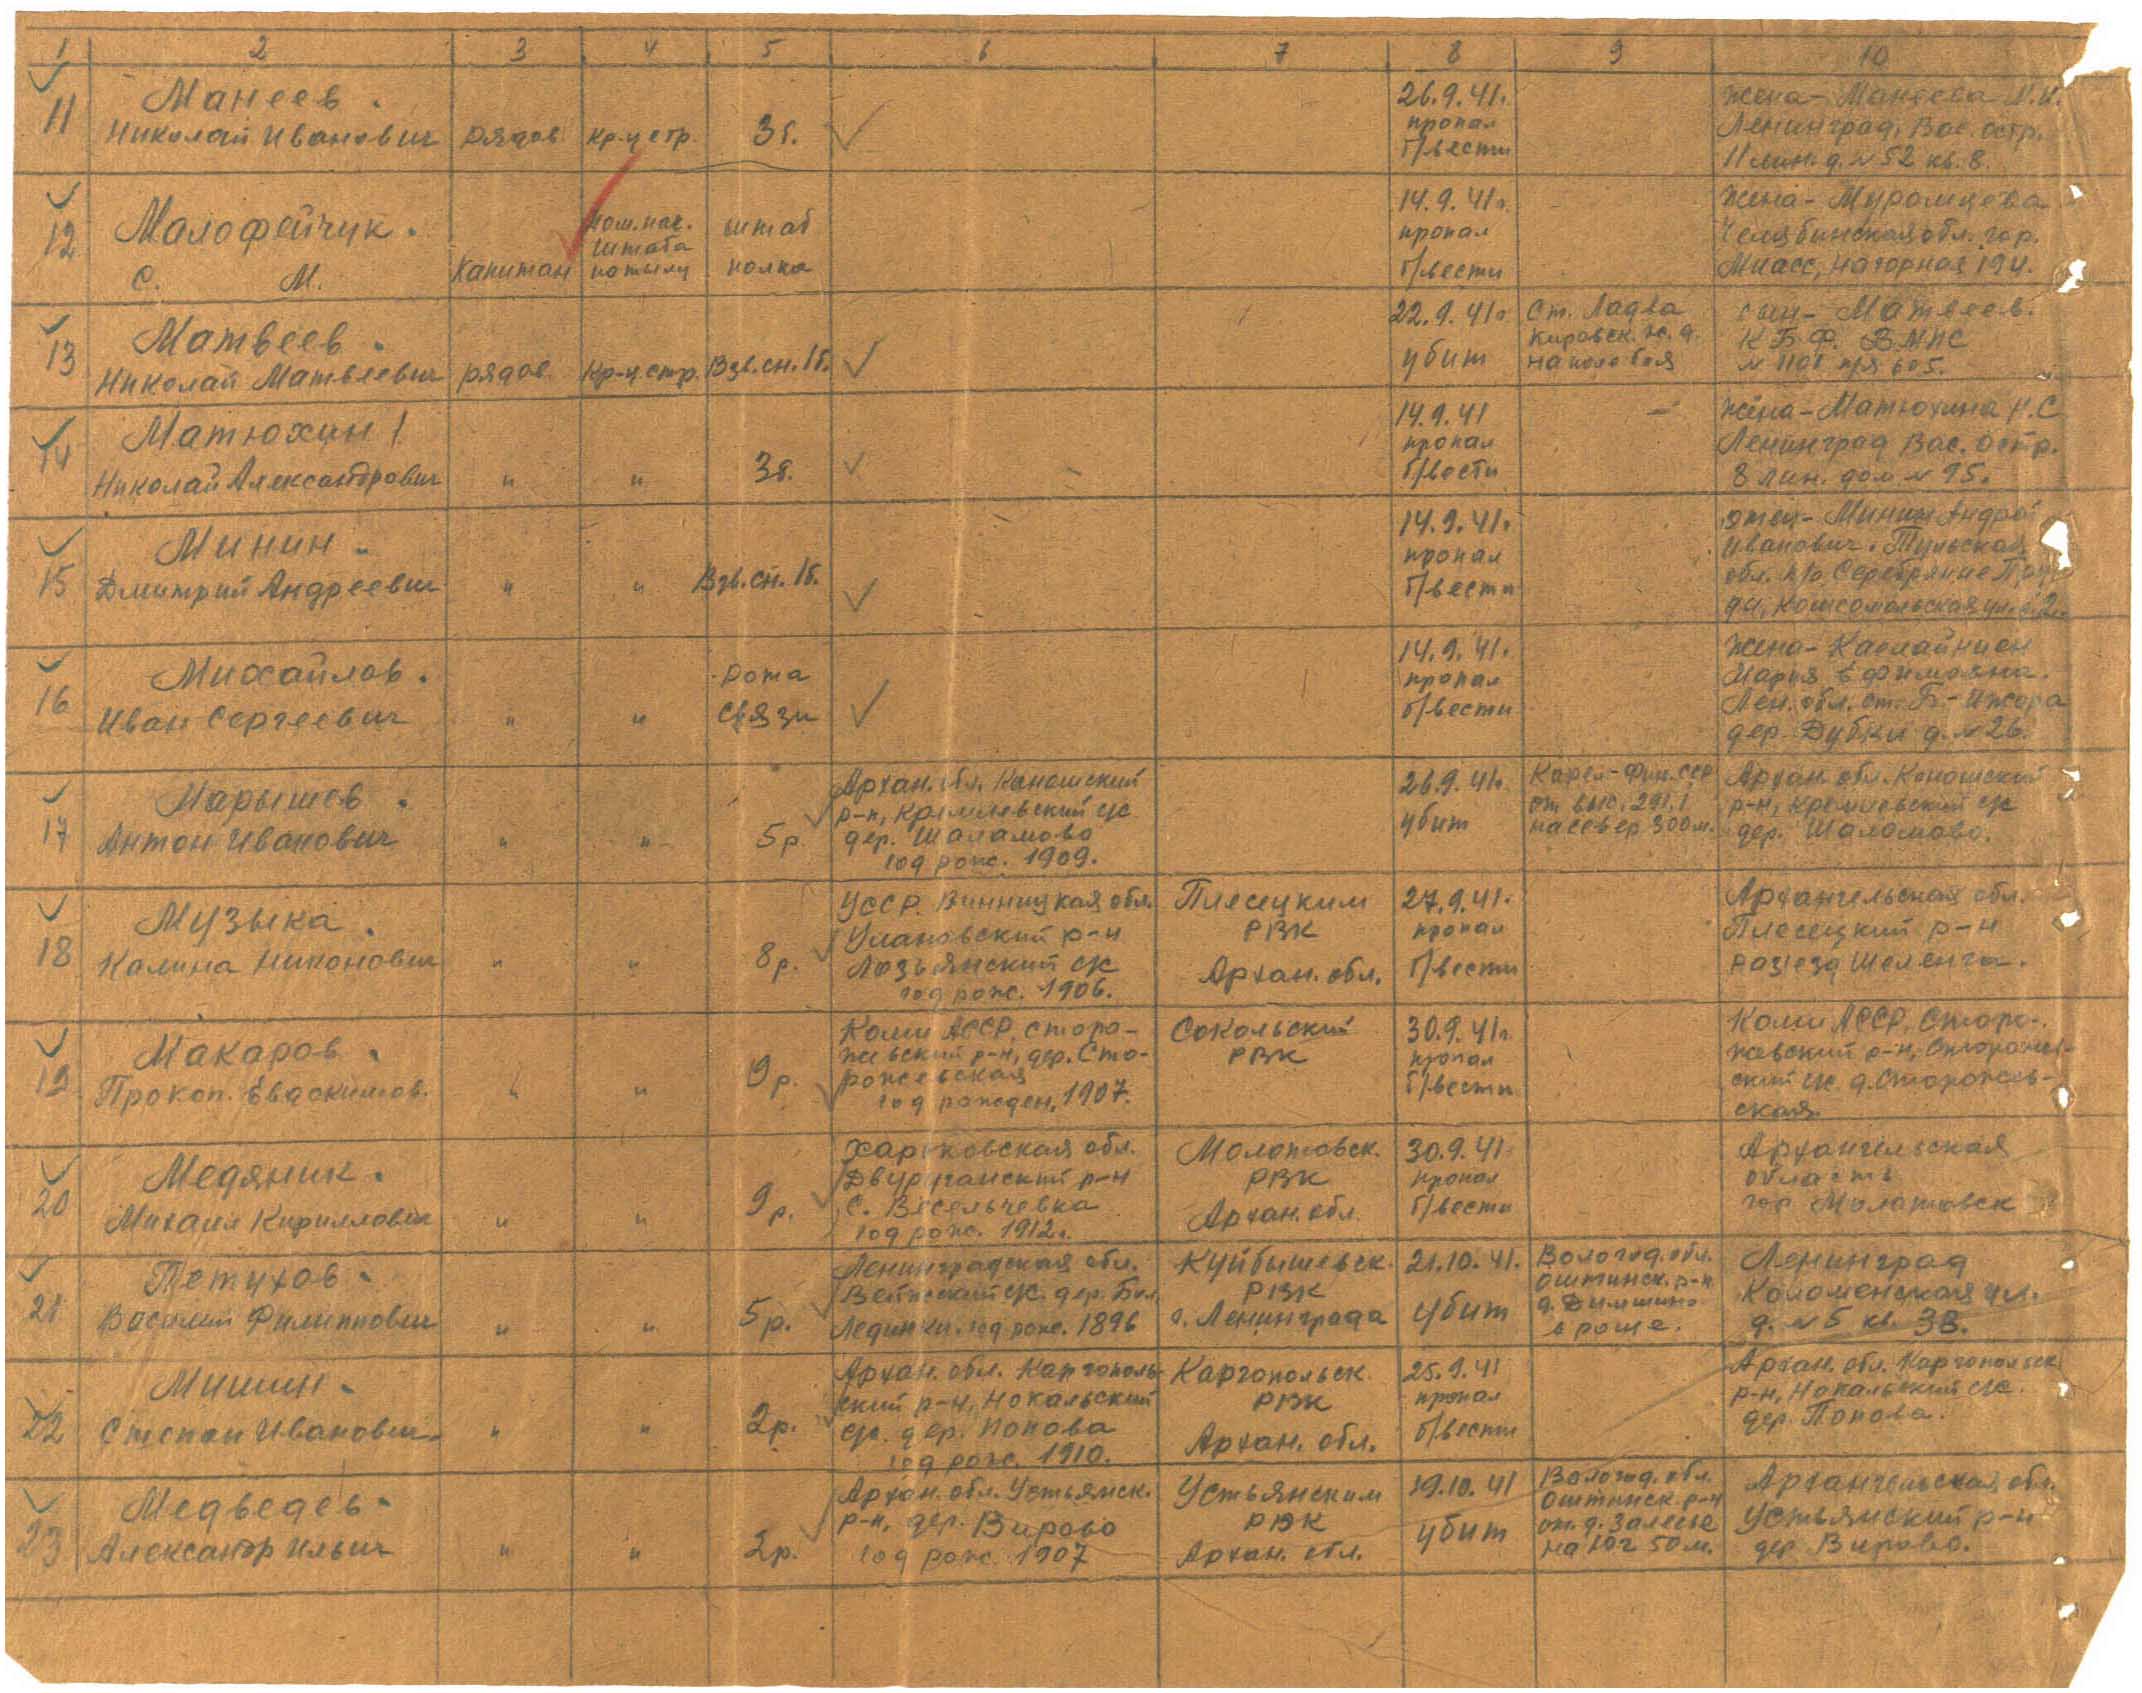 1 2 3 4 5 6 7 8 9 10
11
Манеев.
Николай Иванович
рядов.
кр-ц стр.
3б.
26.9.41г.
пропал
б/вести
жена - Манеева
Ленинград, Вас. остр.
11 лин. д. №52 кв. 8.
12
Малофейчук.
С. М.
Капитан
пом. нач.
штаба
по тылу
штаб
полка
14.9.41г.
пропал
б/вести
жена - Муромцева
Челябинская обл. гор.
Миасс, нагорная 194.
13
Матвеев.
Николай Матвеевич
рядов.
кр-ц. стр.
Взв. сн. 1б.
22.9.41г.
убит
Ст. Ладва
Кировск. ж. д.
на поле боя
сын - Матвеев.
КБФ. ВМПС
№ 1101 п/я 605.
14
Матюхин
Николай Александрович
"
"
3б.
14.9.41
пропал
б/вести
-
жена - Матюхина Н.С
Ленинград Вас. остр.
8 лин. дом № 95.
15
Минин.
Дмитрий Андреевич
"
"
Взв. сн. 1б.
14.9.41г.
пропал
б/вести
отец - Минин Андрей
Иванович. Тульская
обл. п/о Серебряные Пру-
ды, Комсомольская ул.
16
Михайлов.
Иван Сергеевич
"
"
рота
связи
14.9.41г.
пропал
б/вести
жена -
Мария Ефимовна.
Лен. обл. ст. Б.-Ижора
дер. Дубки д. №26.
17
Марышев.
Антон Иванович
"
"
5р
Архан. обл. Коношский
р-н, Кремлевский с/с
дер. Шаламово
год рож. 1909.
26.9.41г.
убит
Карел-Фин. ССР
от выс. 291,1
на север 300м.
Архан. обл. Коношский
р-н, Кремлевский с/с
дер. Шаламово.
18
Музыка.
Калина Никонович
"
"
8р.
УССР. Винницкая обл.
Улановский р-н
Лозьянский с/с
год рож. 1906.
Плесецким
РВК
Архан. обл.
27.9.41.
пропал
б/вести
Архангельская обл.
Плесецкий р-н
раз'езд Шеленга.
19
Макаров.
Прокоп. Евдокимов.
"
"
9р.
Коми АССР, Сторо-
жевский р-н, дер. Сто-
рожевская
год рожден. 1907.
Сокольский
РВК
30.9.41г.
пропал
б/вести
Коми АССР, Сторо-
жевский р-н, Сторожев-
ский с/с д. Сторожев-
ская
20
Медяник.
Михаил Кириллович
"
"
9р.
Харьковская обл.
Двуречанский р-н
с.
год рож. 1912г.
Молотовск.
РВК
Архан. обл.
30.9.41
пропал
б/вести
Архангельская
область
гор Молотовск
21
Петухов.
Василий Филиппович
"
"
5р.
Ленинградская обл.
с/с. дер. Бол.
год рож. 1896
Куйбышевск.
РВК
г. Ленинграда
21.10.41.
убит
Вологод. обл.
Оштинск. р-н
д.
в роще.
Ленинград
Коломенская ул.
д. №5 кв. 38.
22
Мишин.
Степан Иванович.
"
"
2р.
Архан. обл. Каргополь-
ский р-н, Нокальский
с/с. дер. Попова
год рож. 1910.
Каргопольск.
РВК
Архан. обл.
25.9.41
пропал
б/вести
Архан. обл. Каргопольск
р-н, Нокальский с/с.
дер. Попова.
23
Медведев.
Александр Ильич
"
"
2р.
Архан. обл. Устьянск.
р-н, дер. Вирово
год рож. 1907
Устьянским
РВК
Архан. обл.
19.10.41
убит
Вологод. обл.
Оштинск. р-н
от. д. Залесье
на юг 50м.
Архангельская обл.
Устьянский р-н
дер Вирово.